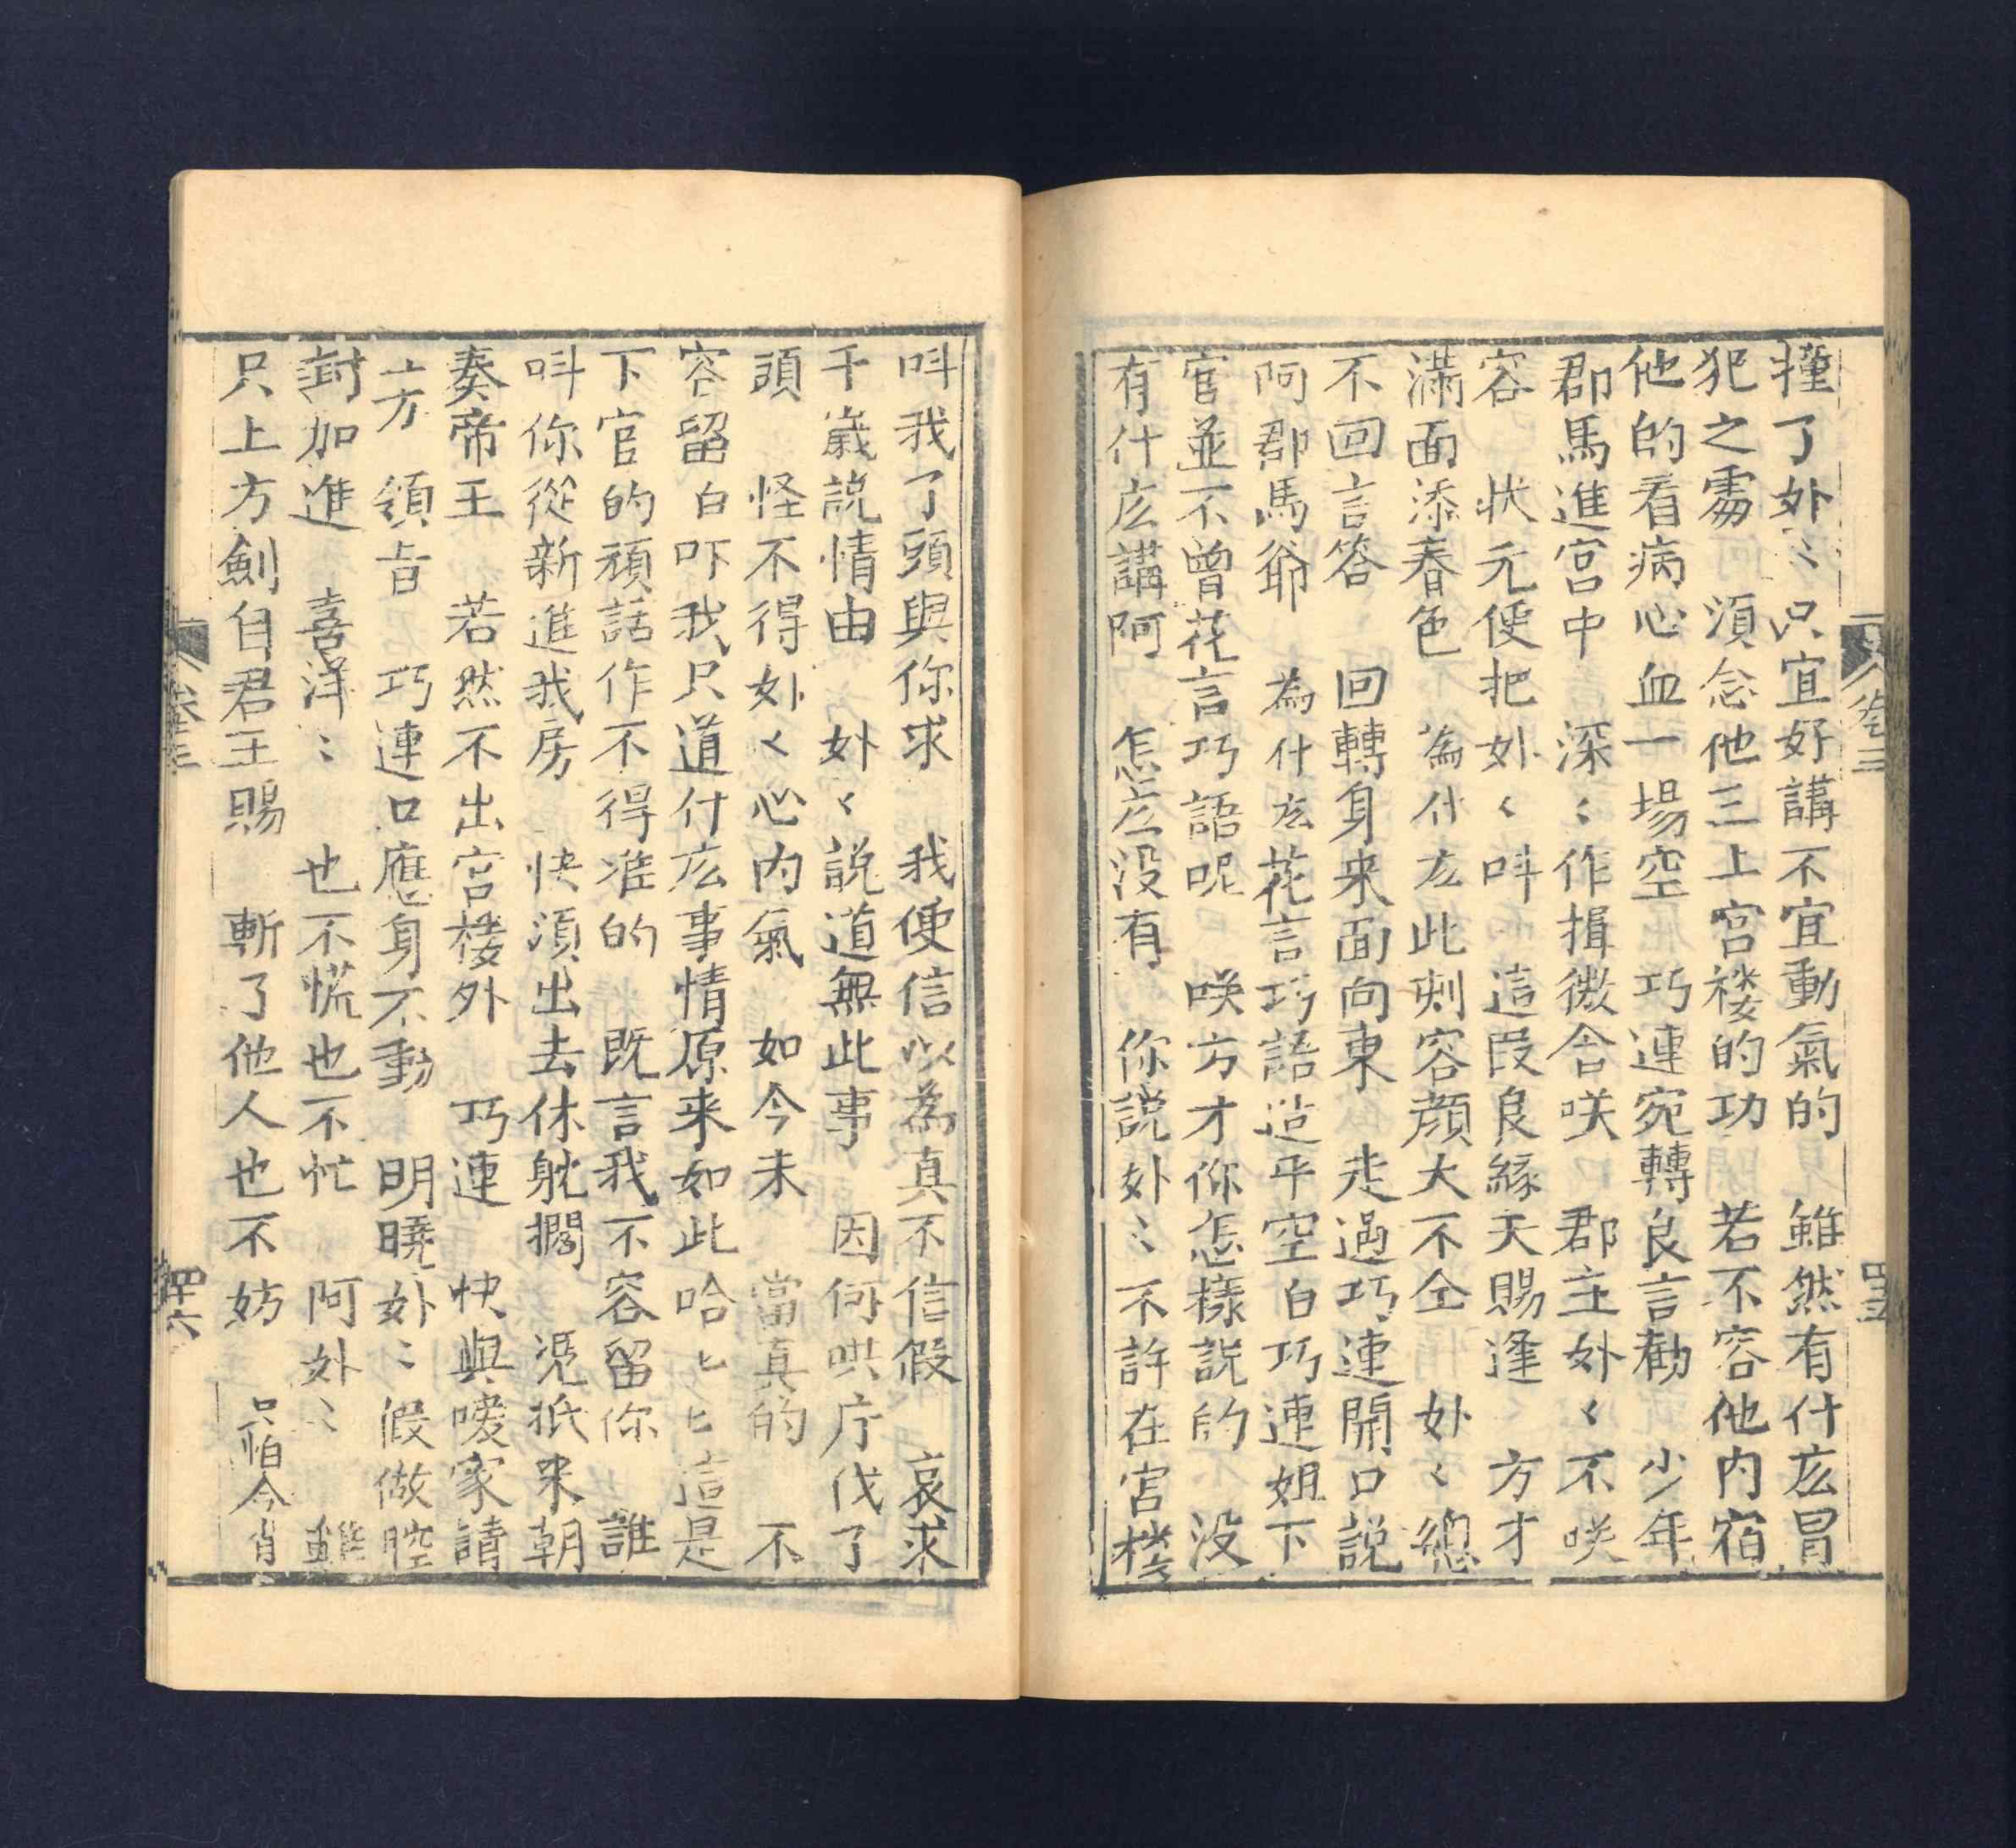 撞了外〻 只宜好講不宜動氣的 雖然有什広冒
犯之䖏 湏念他三上宮楼的功 若不容他内宿
他的看病心血一場空 巧連宛轉良言勸 少年
郡馬進宮中 深〻作揖微含咲 郡主外〻不咲
容 状元便把外〻呌 這叚良緣天賜逢 方才
滿面添春色 為什広此刻容顔大不仝 外〻総
不回言答 回轉身来面向東 走過巧連開口説
阿郡馬爺 為什広花言巧語造平空 白巧連姐下
官並不曾花言巧語呢 咲方才你怎樣説的 没
有什広講阿 怎広没有 你説外〻不許在宮楼
卷三
四十五
呌我了頭與你求 我便信以為真不信假 哀求
千歲説情由 外〻説道無此事 因何哄庁伐了
頭 怪不得外〻心内氣 如今未 當真的 不
容留 白吓我只道什広事情原来如此哈〻〻這是
下官的頑話作不得准的 既言我不容留你 誰
呌你從新進我房 快湏出去休躭擱 涀抵来朝
奏帝王 若然不出宮楼外 巧連 快與噯家請
上方 領㫖 巧連口應身不動 明曉外〻假做腔
討加進 喜洋〻 也不慌也不忙 阿外〻 雖
只上方劍自君王賜 斬了他人也不妨 只怕今肖
卷三
四十六